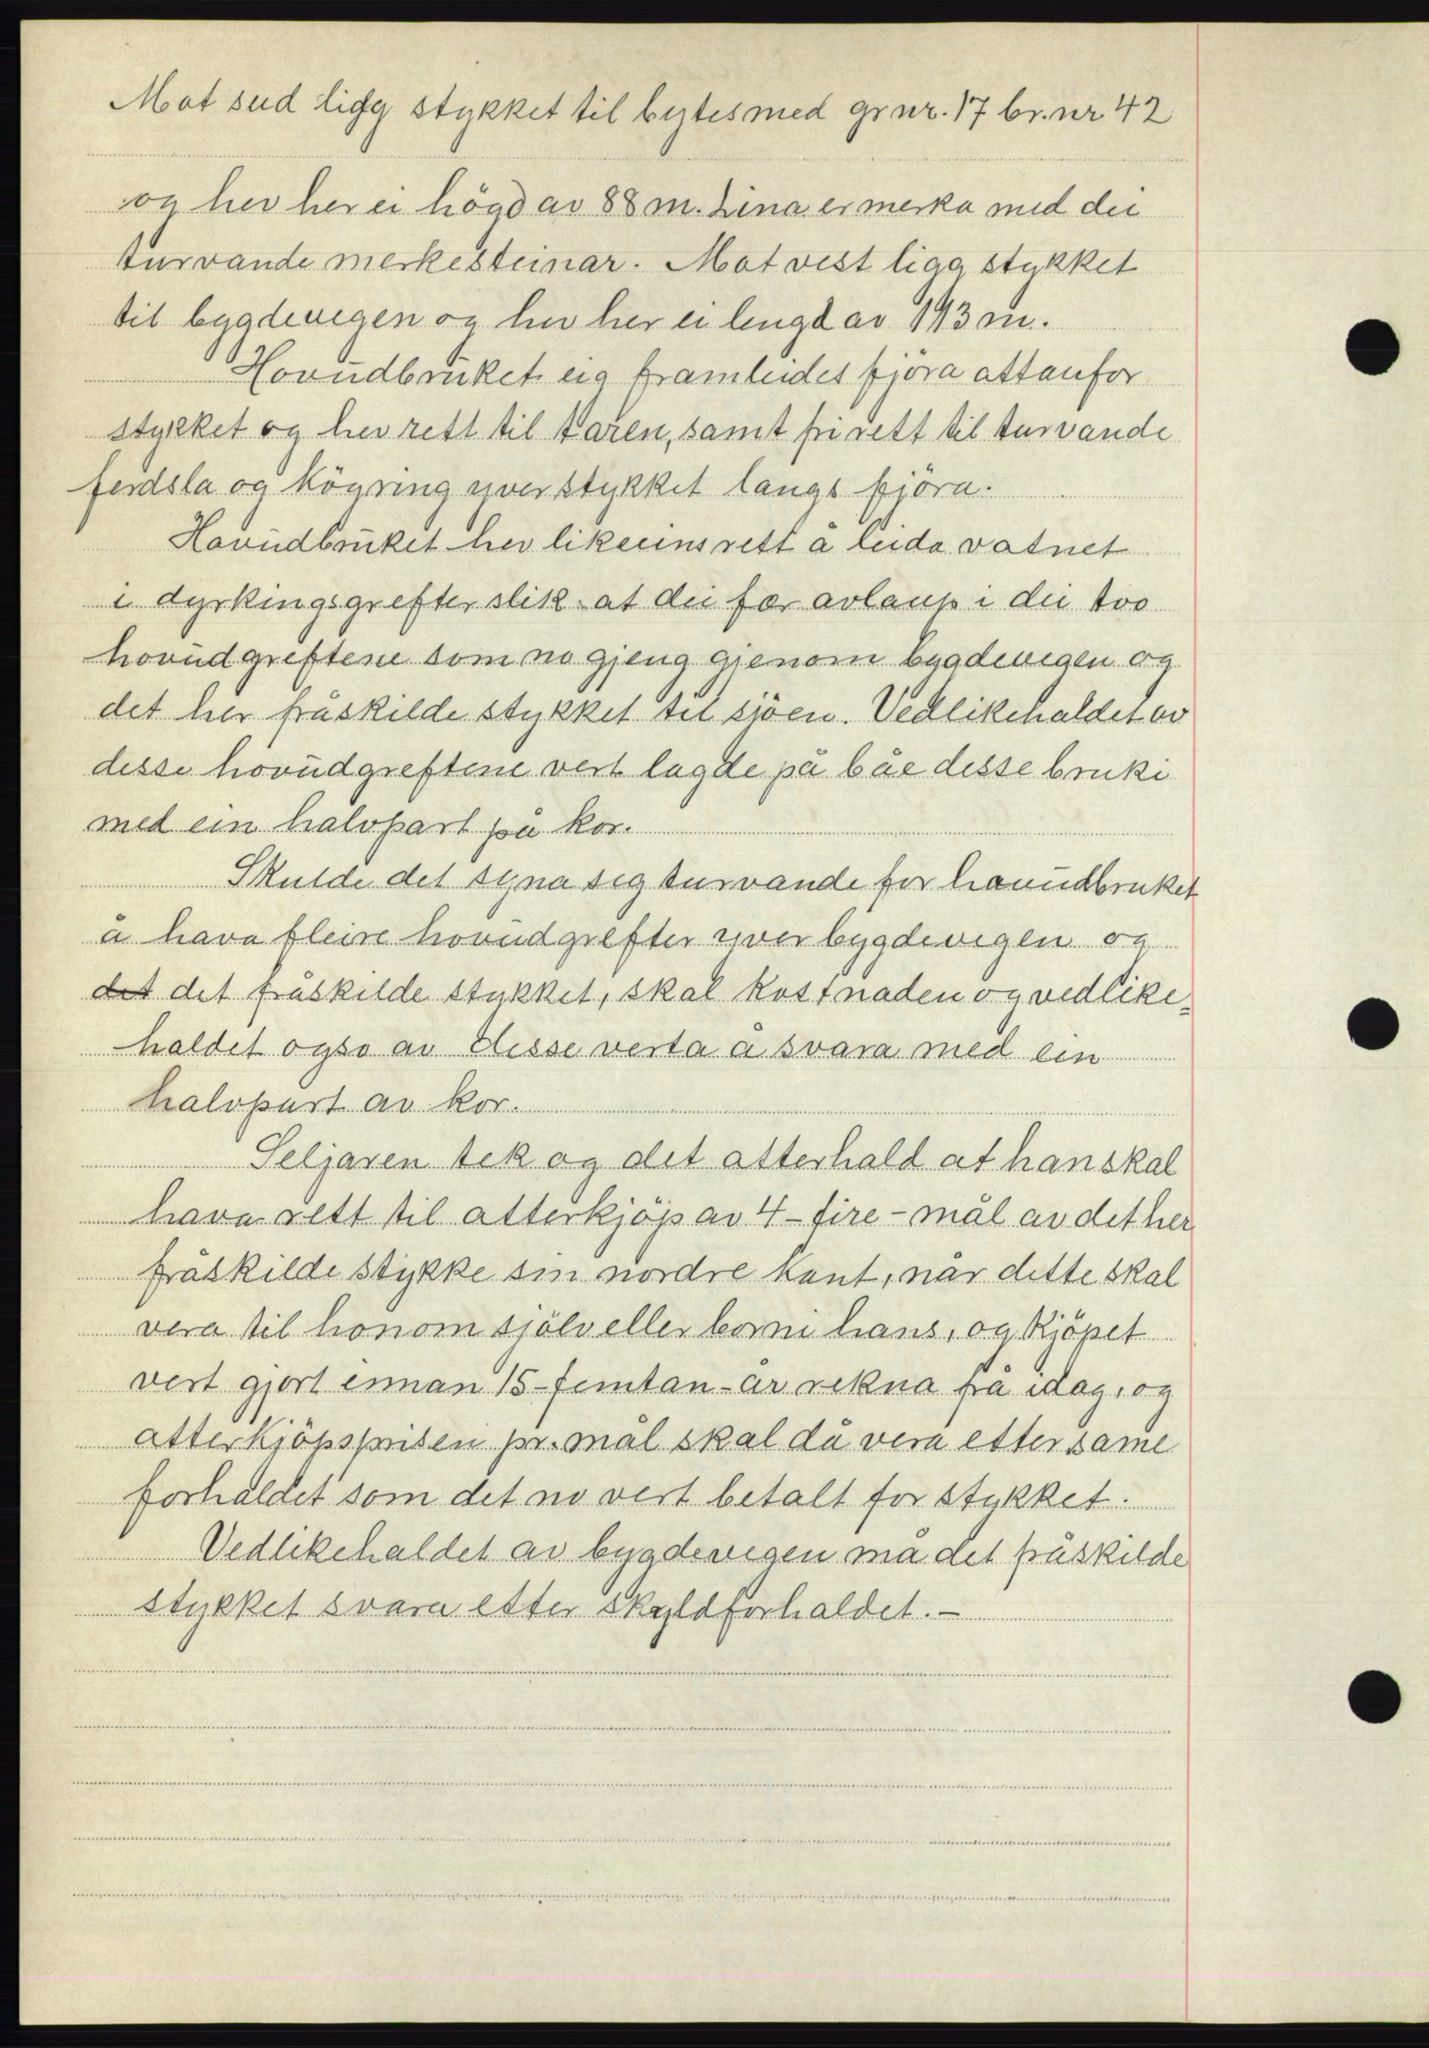 Mot sud ligg stykket til bytes med gr nr. 17 br. nr 42
og hev her ei högd av 88 m. Lina er merka med dei
turvande merkesteinar. Mot vest ligg stykket
til bygdevegen og hev her ei lengd av 193 m.
Hovudbruket eig framleides fjöra attanfor
stykket og hev rett til taren, samt fri rett til turvande
ferdsla og köyring yver stykket langs fjöra.
Hovudbruket hev likeeins rett å leida vatnet
i dyrkingsgrefter slik at dei fær avlaup i dei tvo
hovudgreftene som no gjeng gjenom bygdevegen og
det her fråskilde stykket til sjöen. Vedlikehaldet av
desse hovudgreftene vert lagde på båe desse bruki
med ein halvpart på kor.
Skulde det syna seg turvande for hovudbruket
å hava fleire hovudgrefter yver bygdevegen og
det det fråskilde stykket, skal kostnaden og vedlike-
haldet ogso av desse verta å svara med ein
halvpart av kor.
Seljaren tek og det atterhald at han skal
hava rett til atterkjöp av 4 - fire - mål av det her
fråskilde stykke sin nordre kant, når dette skal
vera til honom sjölv eller borni hans, og kjöpet
vert gjort innan 15 - femtan - år rekna frå idag, og
atterkjöpsprisen pr. mål skal då vera etter same
forhaldet som det no vert betalt for stykket.
Vedlikehaldet av bygdevegen må det fråskilde
stykket svara etter skyldforhaldet. -